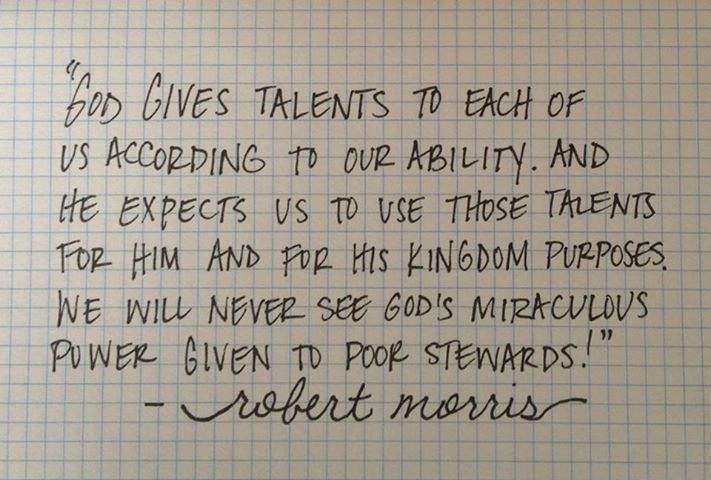 "GOD GIVES TALENTS TO EACH OF
US ACCORDING TO OUR ABILITY. AND
HE EXPECTS US TO USE THOSE TALENTS
FOR HIM AND FOR HIS KINGDOM PURPOSES.
WE WILL NEVER SEE GOD'S MIRACULOUS
POWER GIVEN TO POOR STEWARDS!"
- robert morris